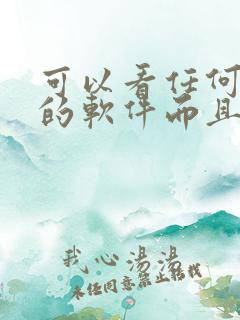 可以看任何
的軟件而且
我心湯湯
未经同意禁止转载